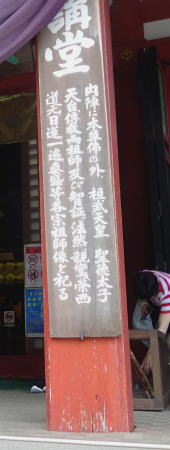 講堂
内陣に本尊佛の外 桓武天皇 聖徳太子
天台傳教両祖師及び智証 法然 親鸞 榮西
道元 日蓮 一遍 真盛等各宗祖師像を祀る